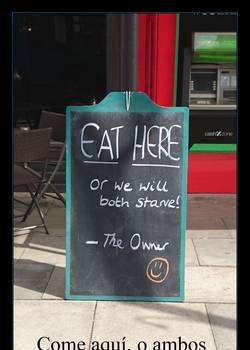 cashzone
EAT HERE
Or we will
both starve!
- The Owner
Come aquí, o ambos